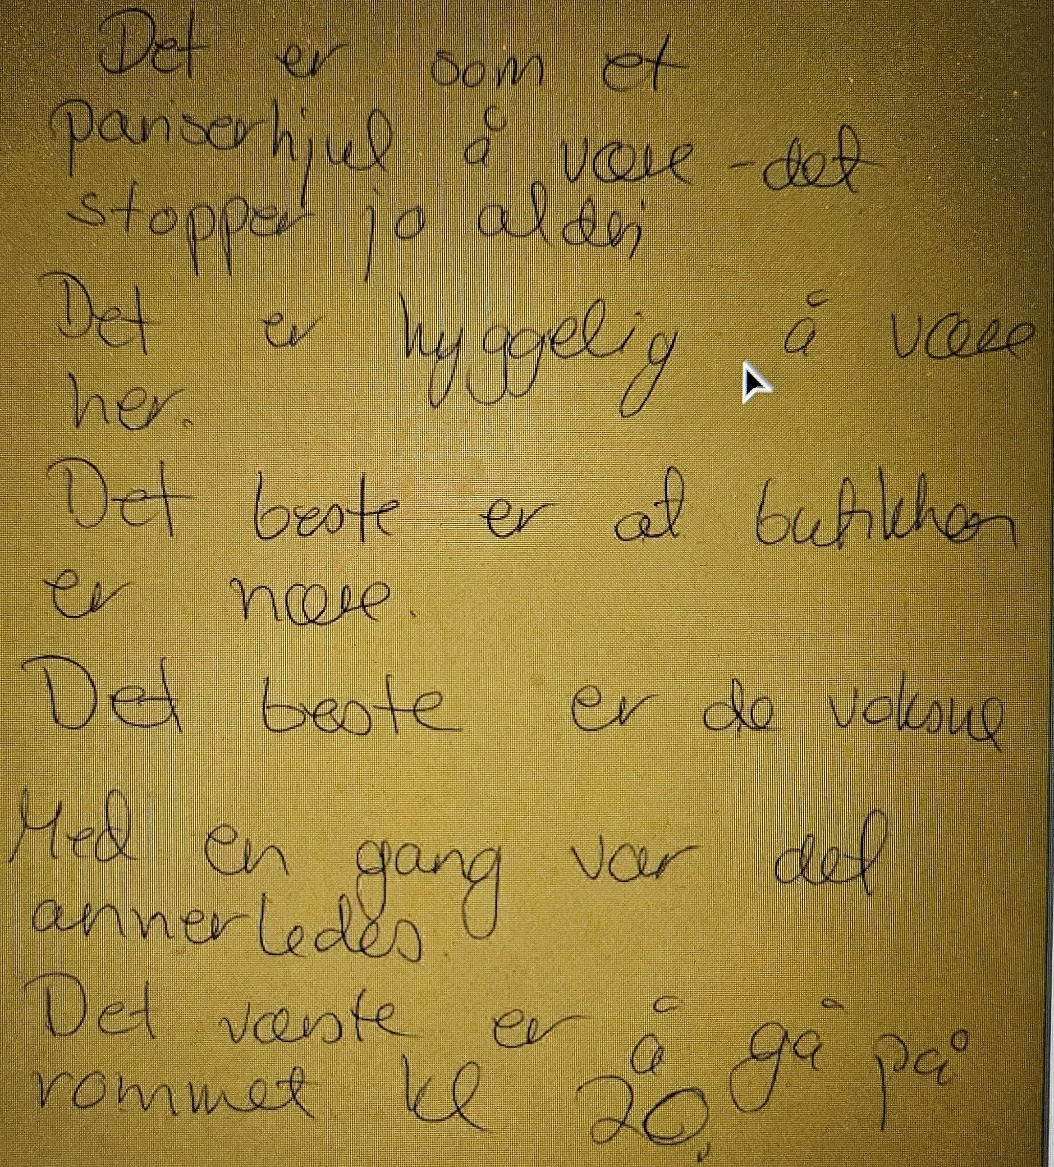 Det er som et
panserhjul å være - det
stopper jo aldri
Det er hyggelig å være
her.
Det beste er at butikken
er nære.
Det beste er de voksne
Med en gang var det
annerledes.
Detværste er å gå på
rommet kl 20.